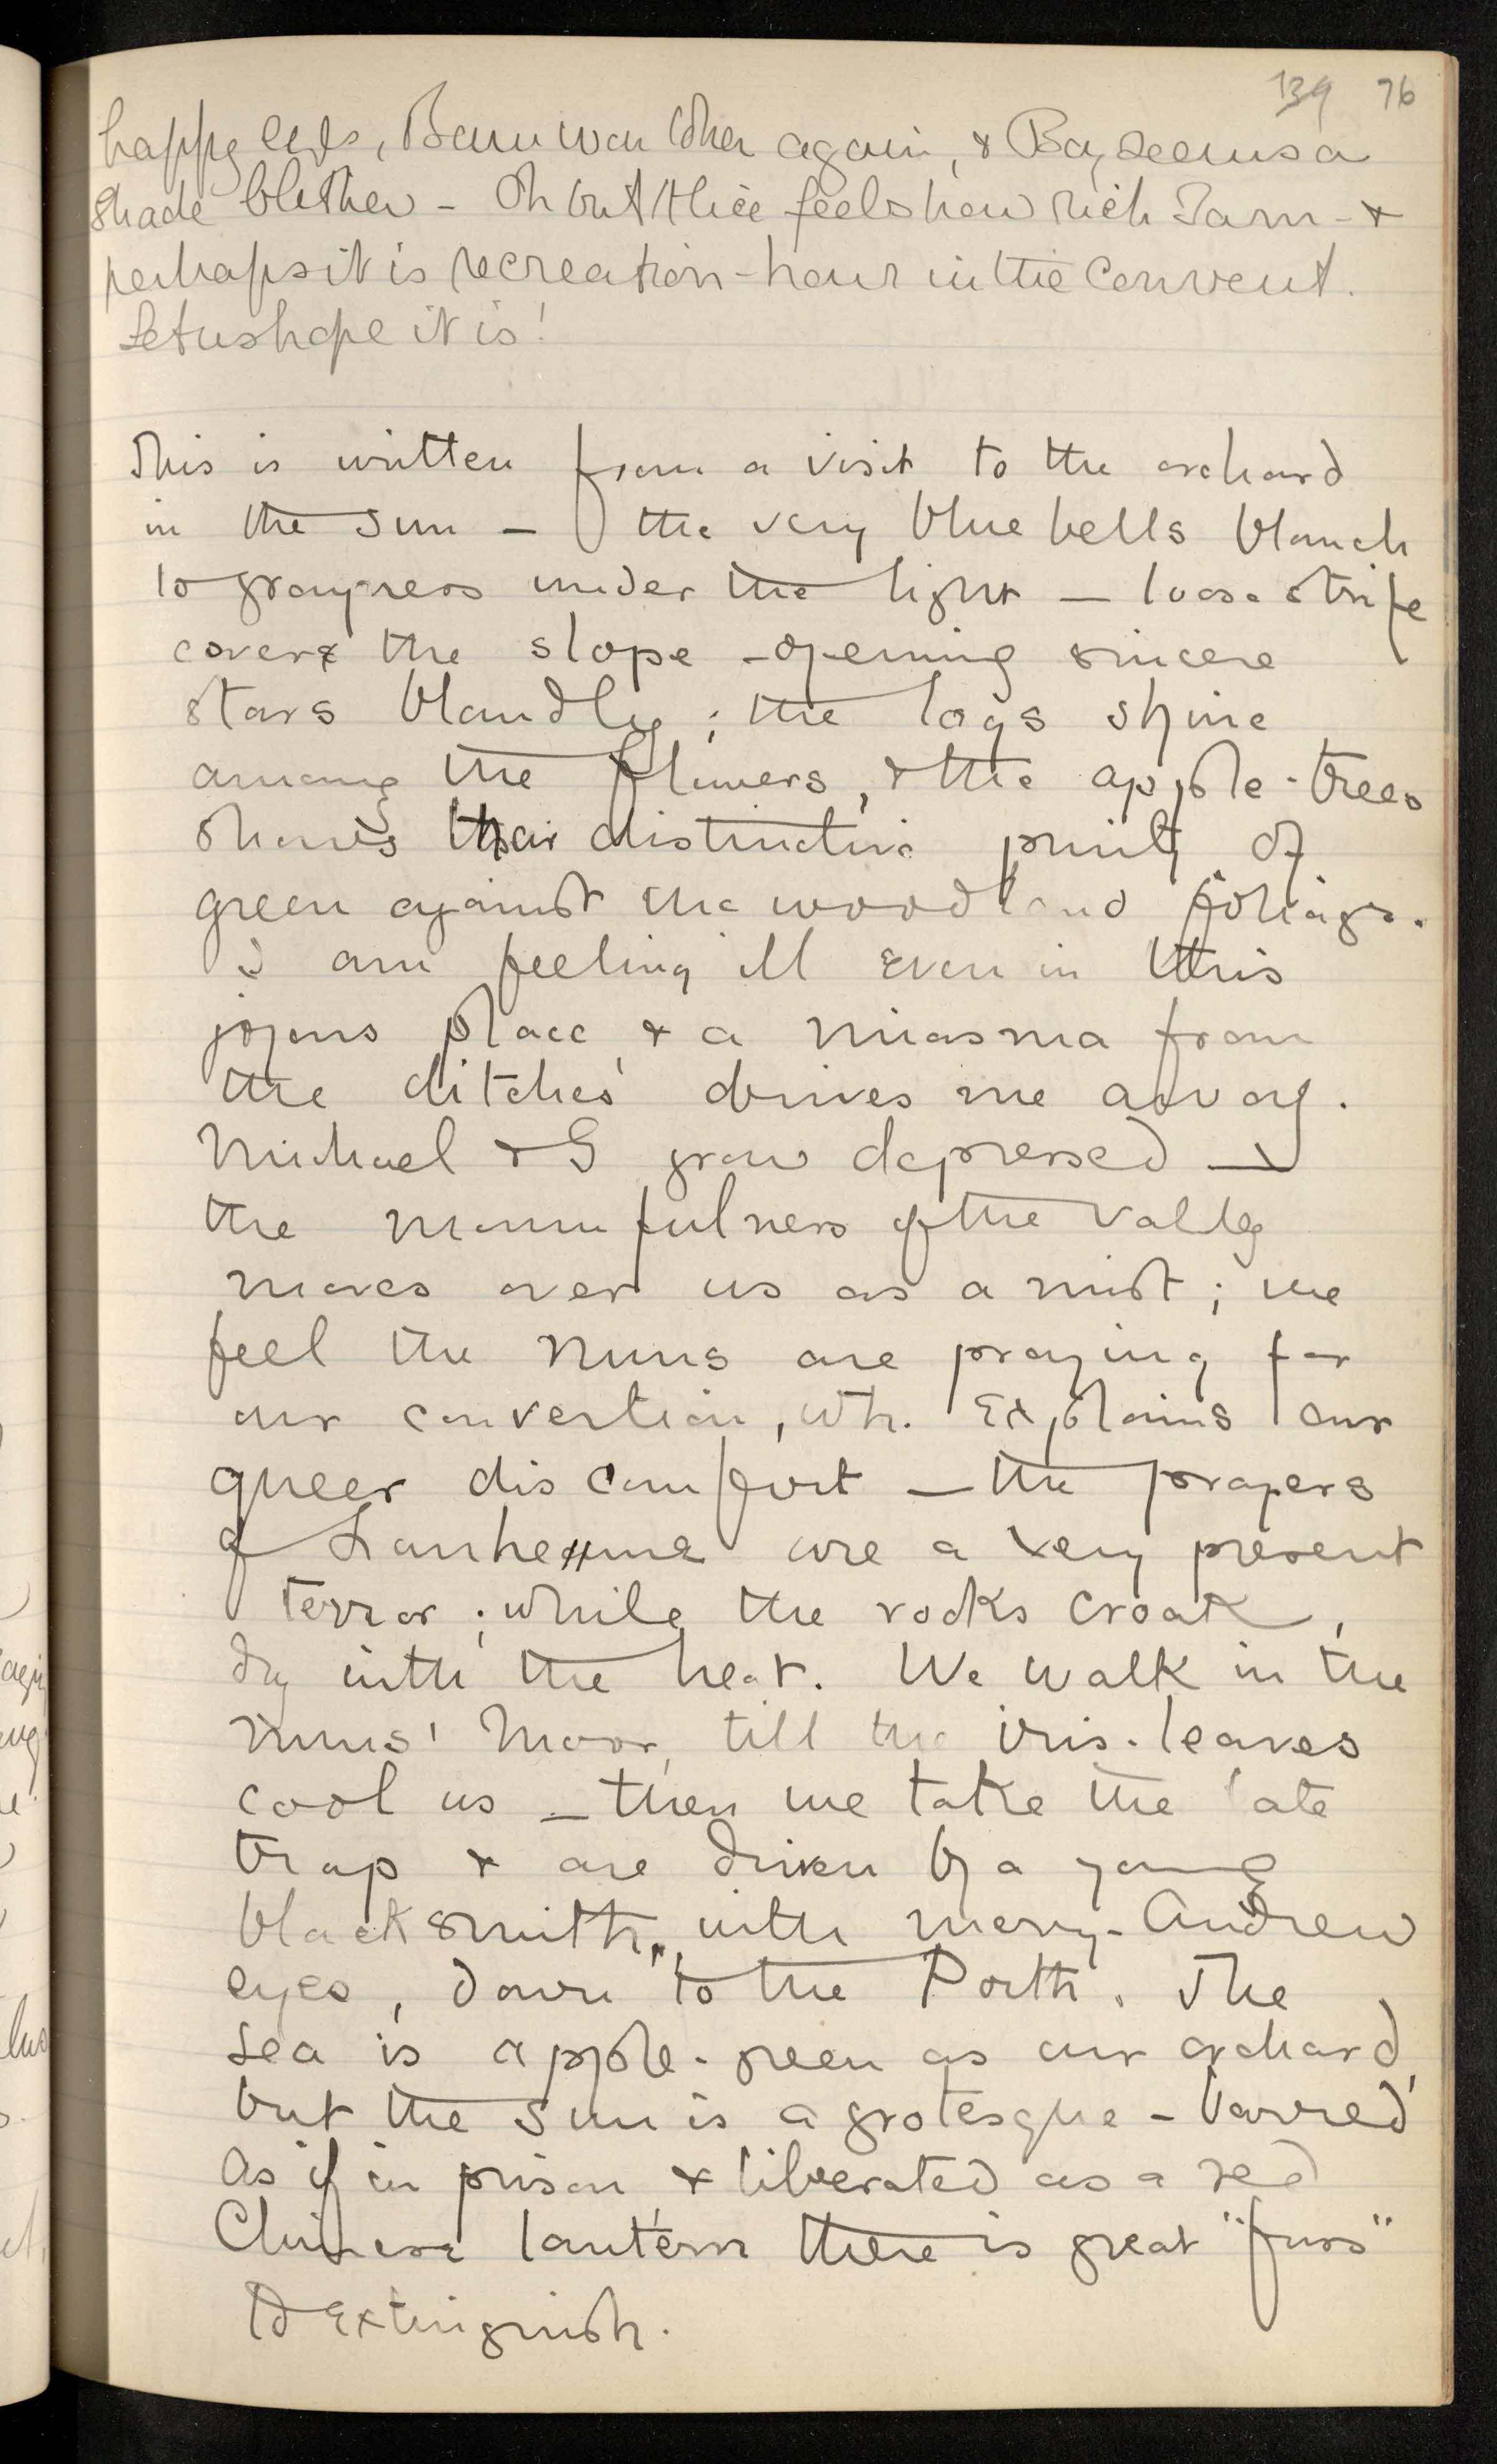 139 76
happy , again, & Bay seems a
shade blither - Oh but Alice feels how rich I am - &
perhaps it is recreation-hour in the Convent.
Let us hope it is!
This is written from a visit to the orchard
in the sun — the very blue bells blanch
to grayness under the light — loose strife
covers the slope - opening sincere
stars blandly; the logs shine
among the flowers, & the apple-trees
shows their distinctive purity of
green against the woodland foliage.
I am feeling ill even in this
joyous place & a miasma from
the ditches drives me away.
Michael & I grow depressed —
the mournfulness of the valley
moves over us as a mist; we
feel the Nuns are praying for
our convertion, wh. explains our
queer discomfort — the prayers
of Lanherne are a very present
terror; while the rooks croak,
dry with the heat. We walk in the
nuns' Moor, till the iris-leaves
cool us — then we take the late
trap & are driven by a young
blacksmith, with merry-Andrew
eyes, down to the Porth. The
sea is apple-green as our orchard,
but the sun is a grotesque - barred
as if in prison & liberated as a red
Chinese lantern there is great "fuss"
to extinguish.